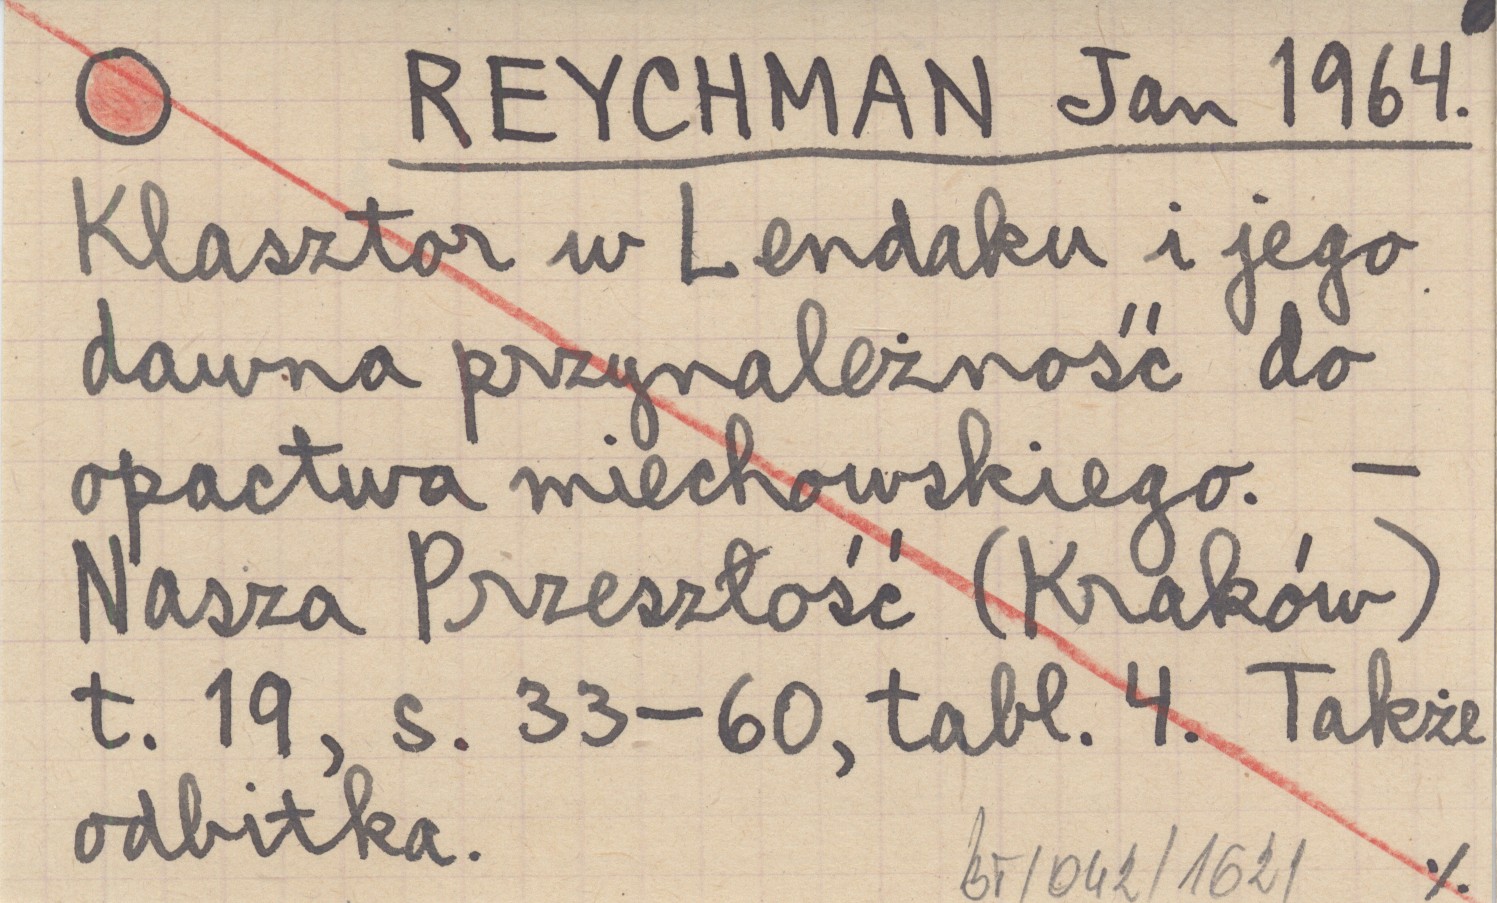 REYCHMAN Jan 1964.
Klasztor w Lendaku i jego
dawna przynależność do
opactwa miechowskiego. —
Nasza Przeszłość (Kraków)
t. 19, s. 33—60, tabl. 4. Także
odbitka.
/042/162/
./.